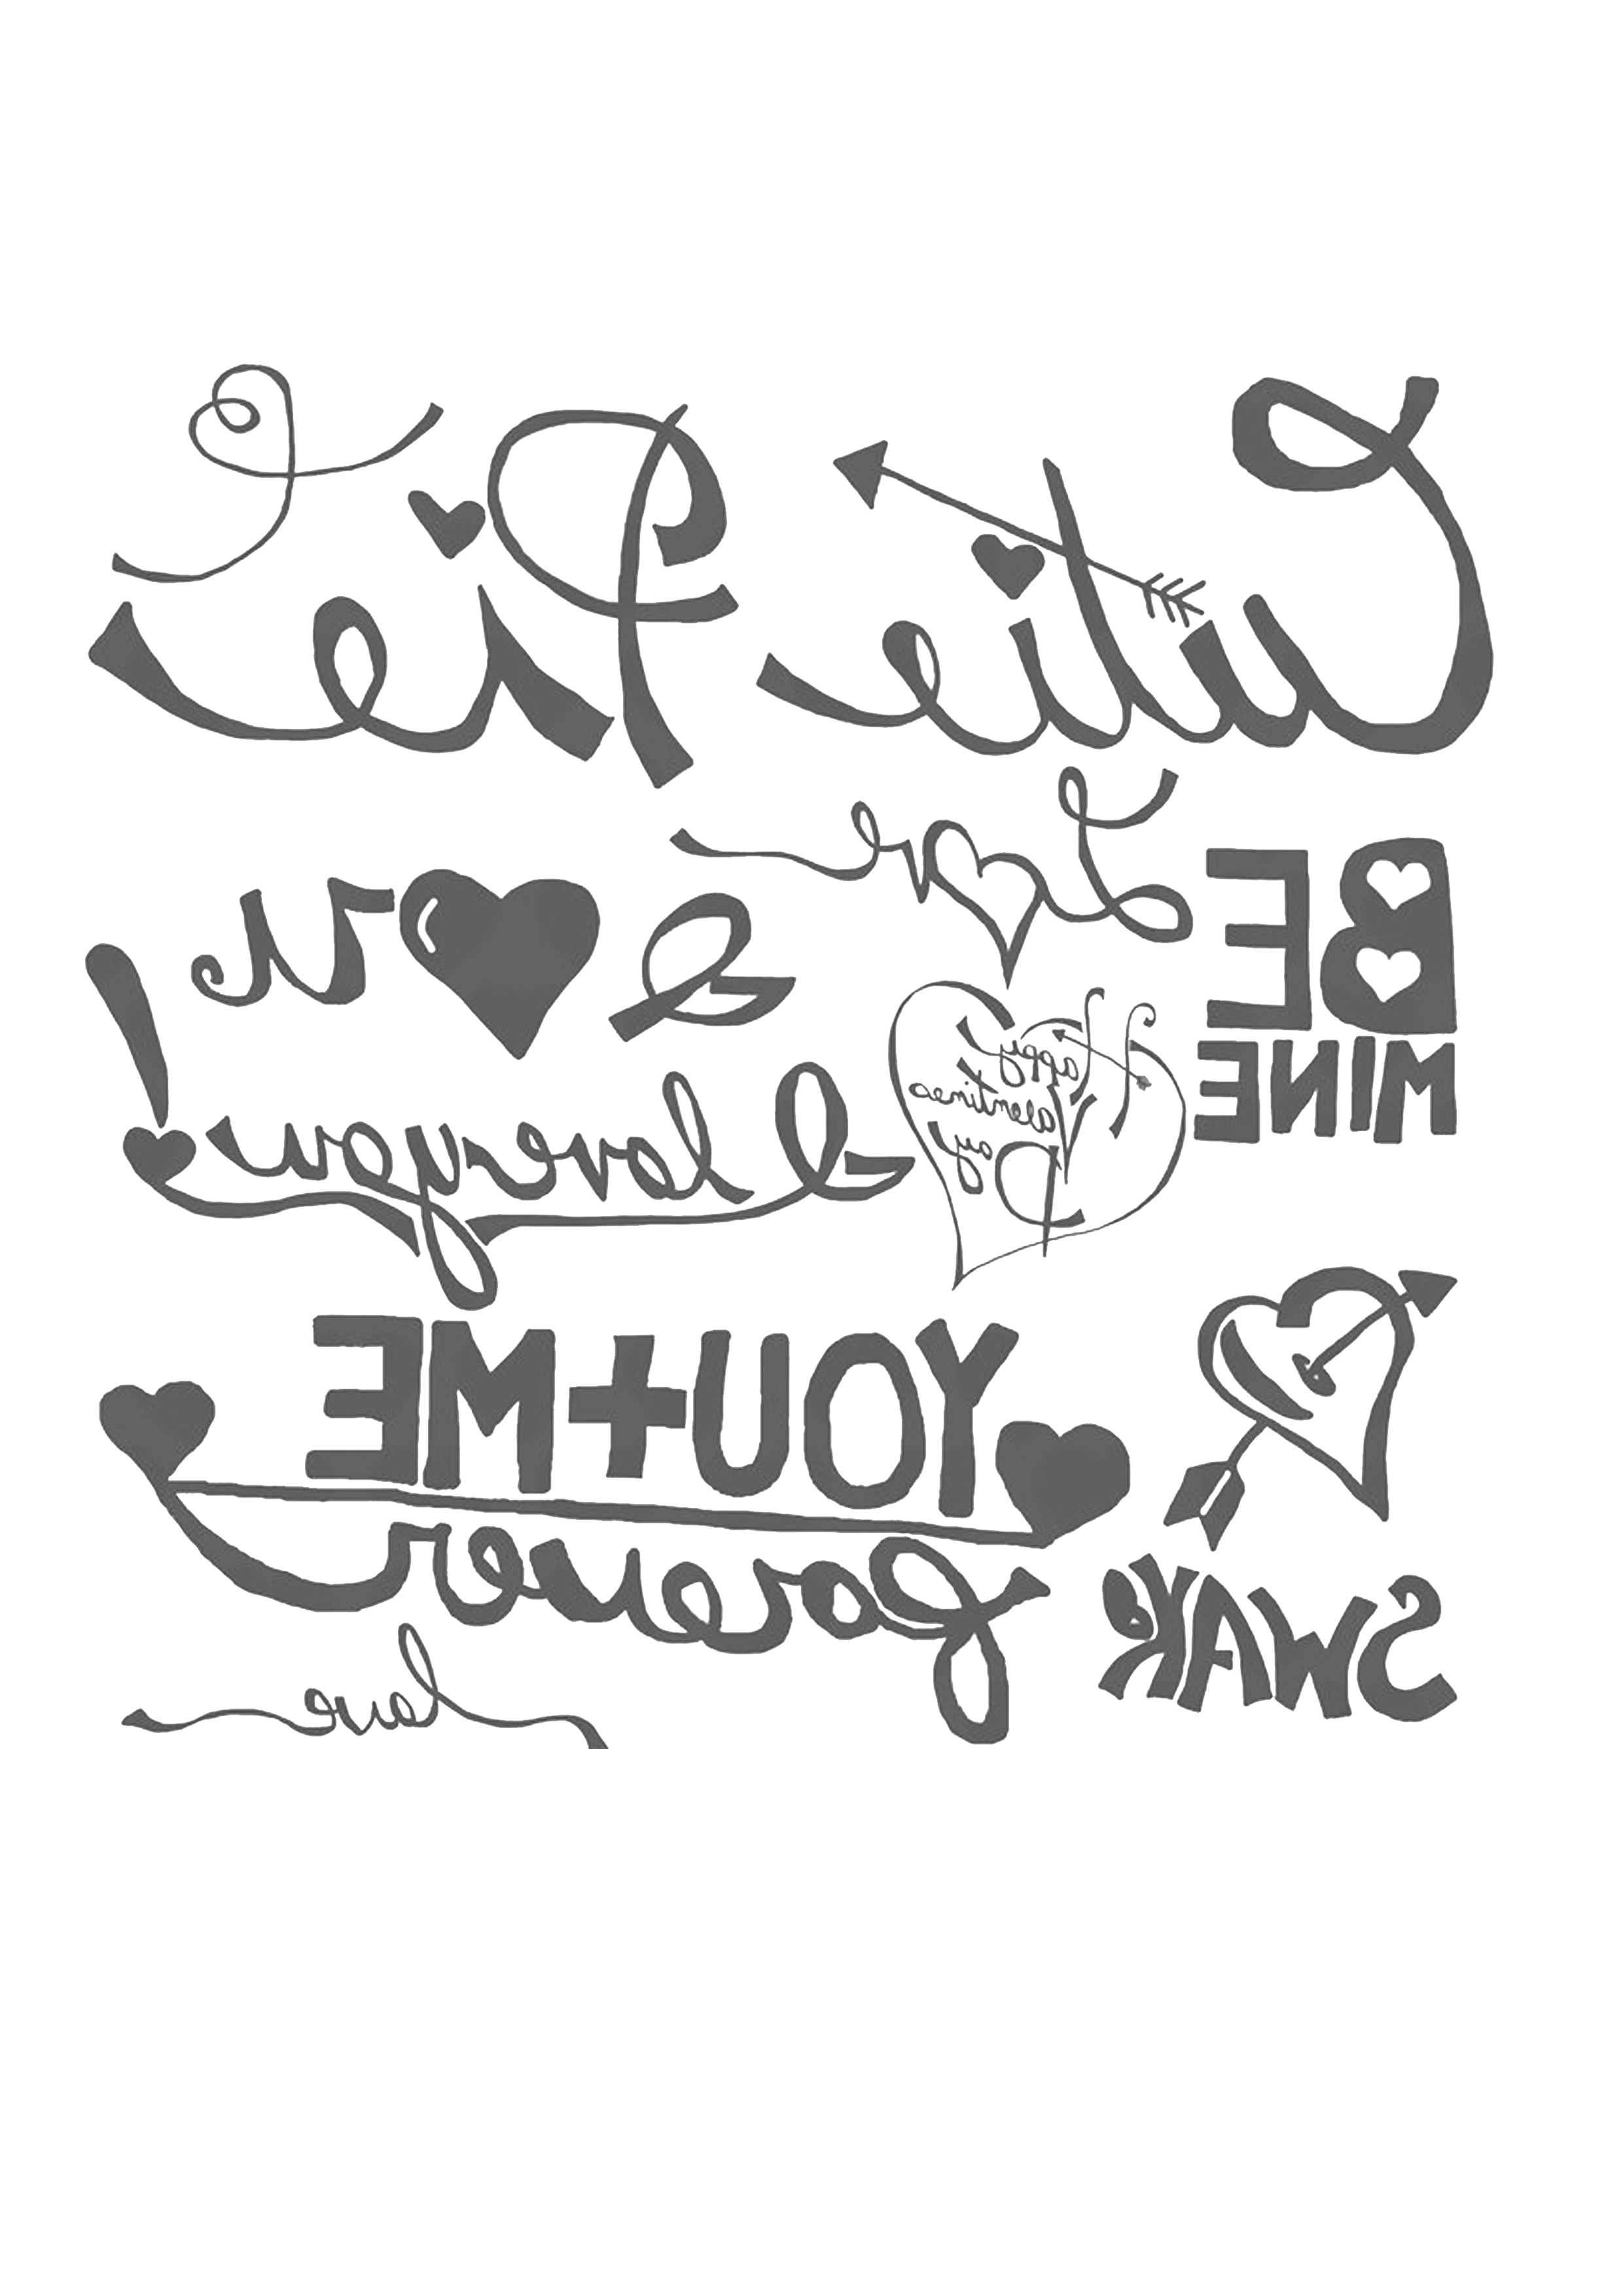 Cutie Pie
Love
BE
MINE
Happy
Valentine's
Day
YOU+ME
forever
SWAK
love